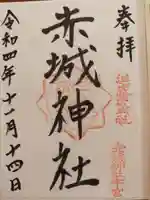 奉拝
赤城神社
令和四年十一月十四日